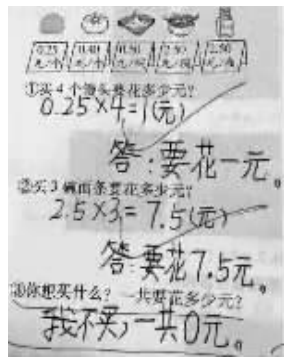 0.25 0.40 0.50 2.50 2.50
①买4个馒头要花多少元？
0.25×4=1(元)
答:要花一元。
②买3碗面条要花多少元？
2.5×3=7.5(元)
答:要花7.5元。
③你想买什么？一共要花多少元？
我不买,一共0元。